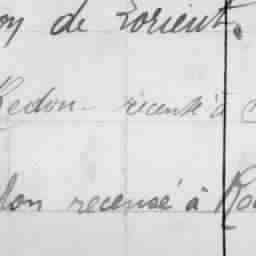 de Lorient.
Redon recensé à
recensé à